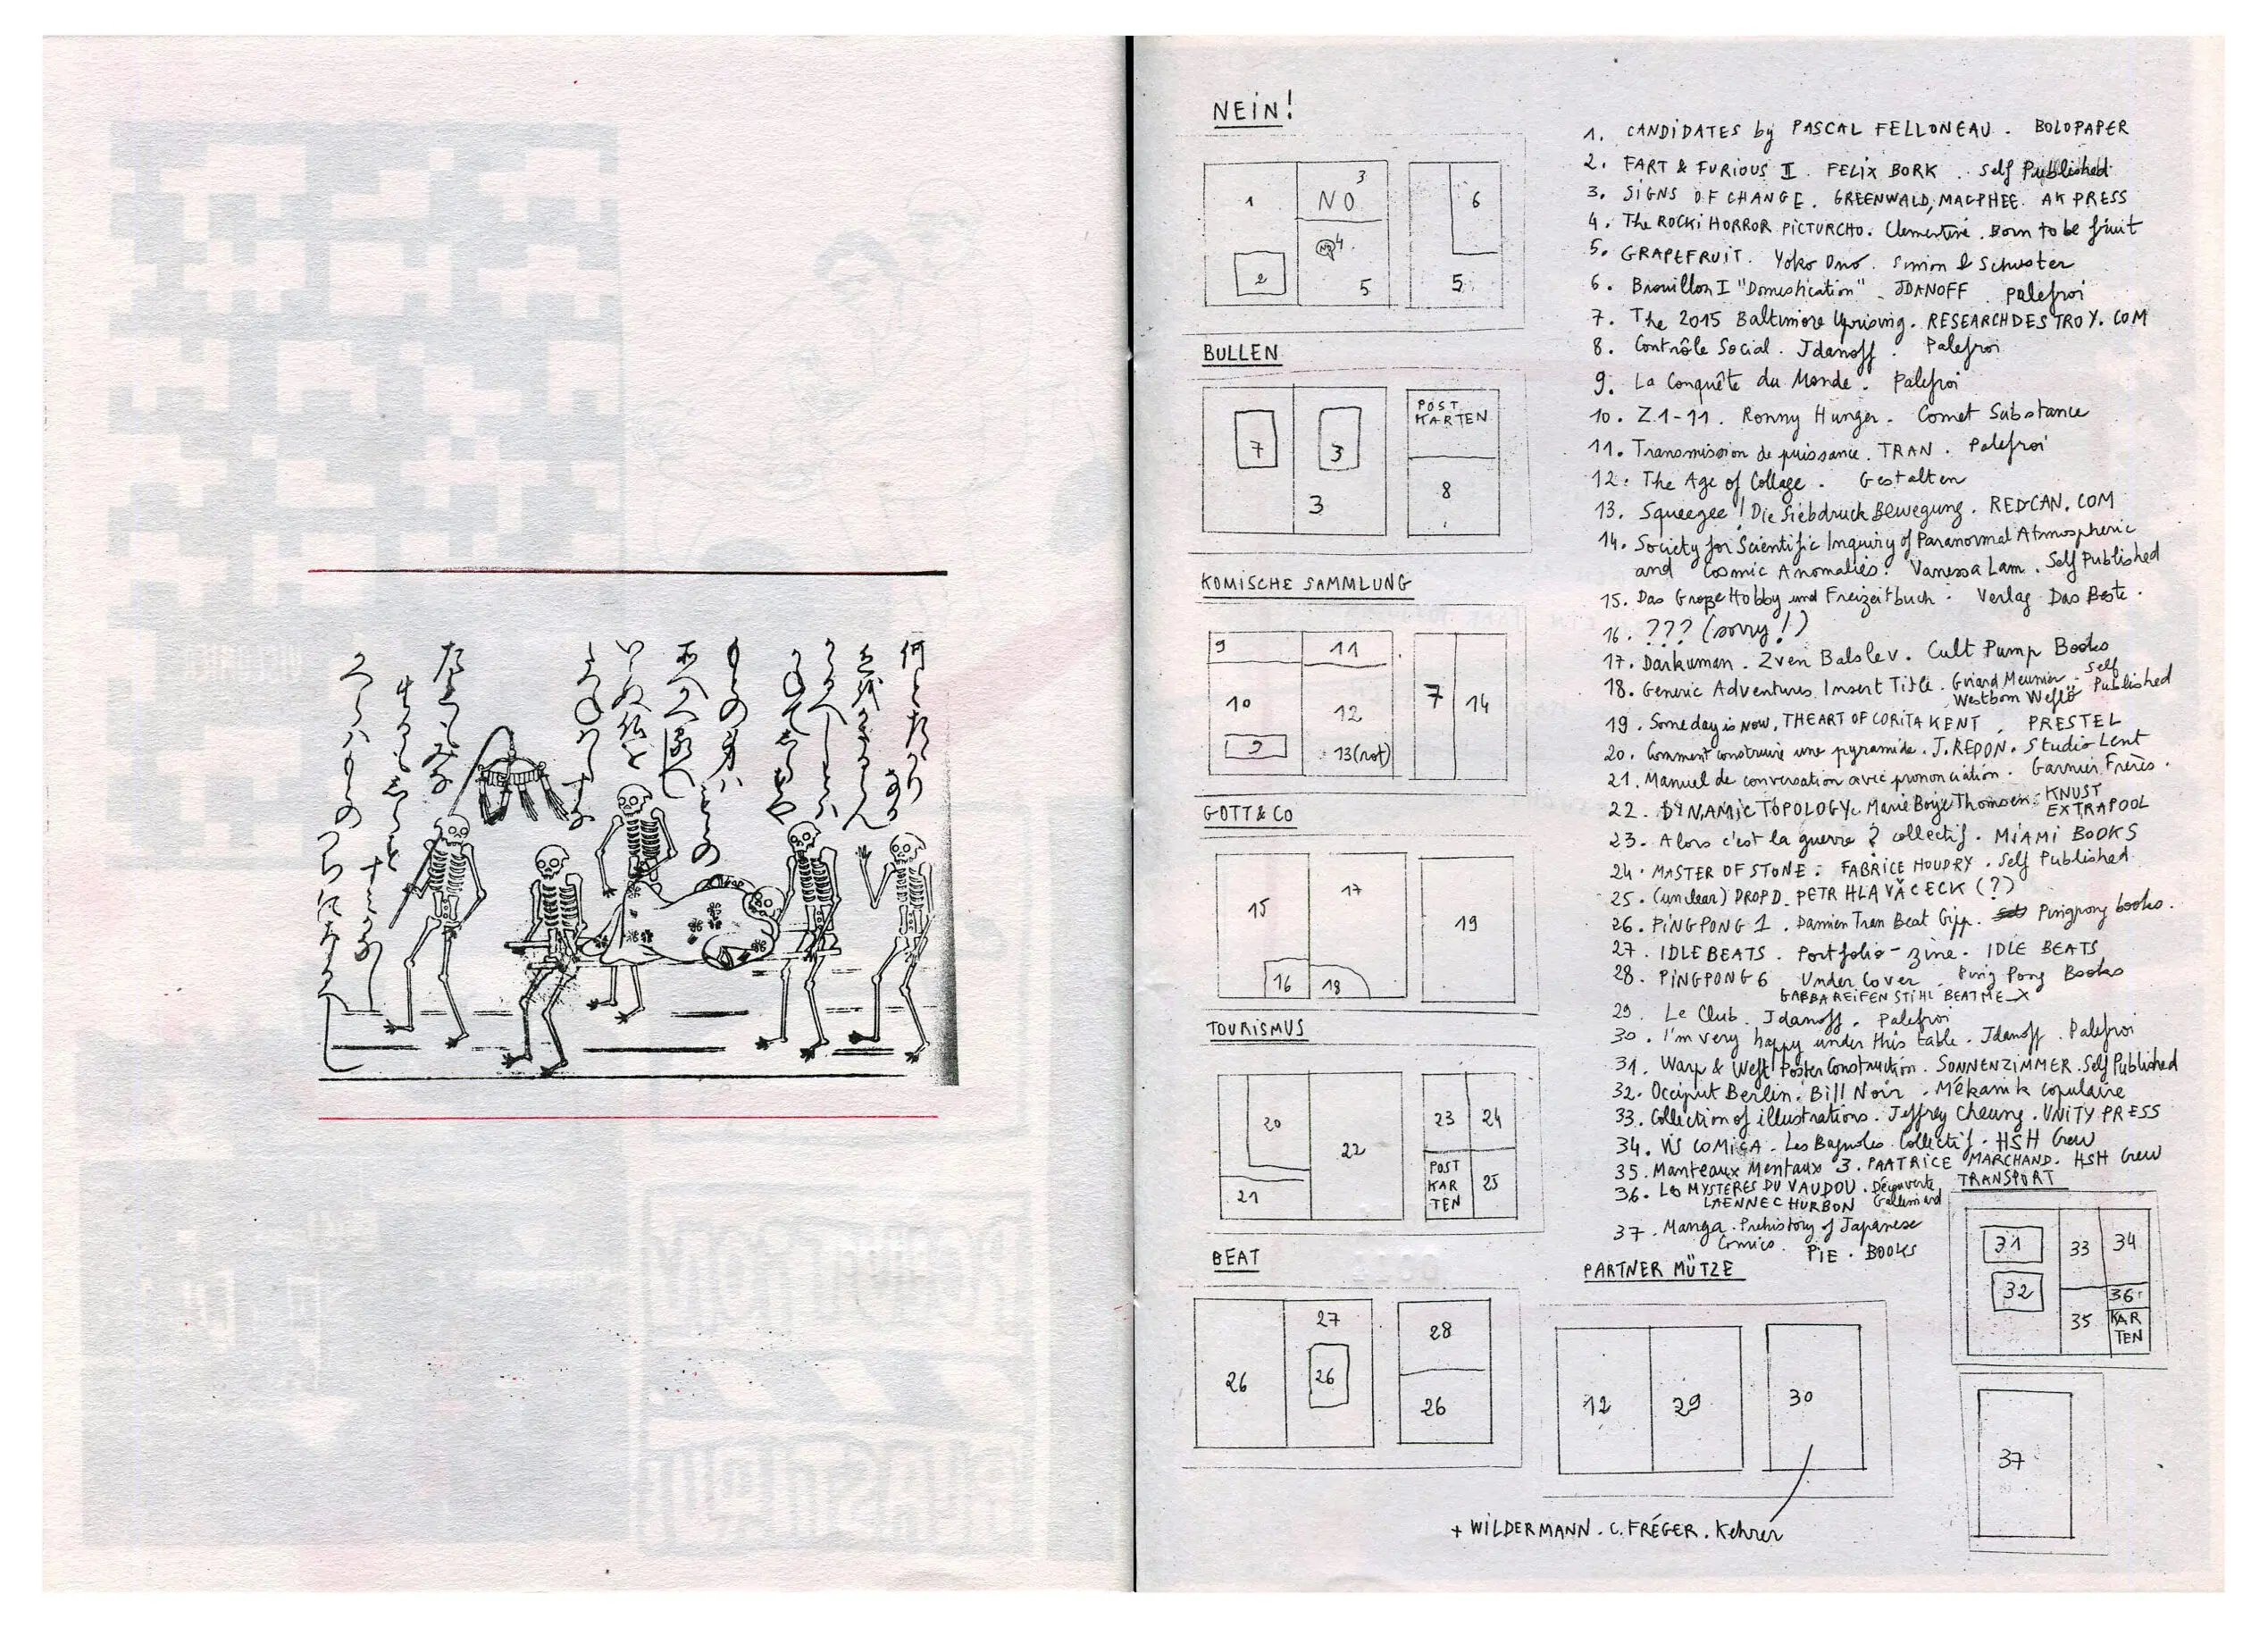 NEIN!
1
3
NO
NO 4.
2
5
6
5
BULLEN
7
3
3
POST
KARTEN
8
KOMISCHE SAMMLUNG
9
11
10
12
9
13(rot)
7
14
GOTT & CO
15
17
16
18
19
TOURISMUS
20
22
21
23
24
POST
KAR
TEN
25
BEAT
26
27
26
28
26
1. CANDIDATES by PASCAL FELLONEAU. BOLOPAPER
2. FART & FURIOUS II. FELIX BORK. Self Published
3. SIGNS OF CHANGE. GREENWALD, MACPHEE. AK PRESS
4. The ROCKI HORROR PICTURCHO. Clementine. Born to be fruit
5. GRAPEFRUIT. Yoko Ono. Simon & Schuster
6. Brouillon I "Domestication". JDANOFF. Palefroi
7. The 2015 Baltimore Uprising. RESEARCHDESTROY.COM
8. Contrôle Social. Jdanoff. Palefroi
9. La Conquête du Monde. Palefroi
10. Z.1-11. Ronny Hunger. Comet Substance
11. Transmission de puissance. TRAN. Palefroi
12. The Age of Collage. Gestalten
13. Squeegee! Die Siebdruck Bewegung. RED-CAN.COM
14. Society for Scientific Inquiry of Paranormal Atmospheric
and Cosmic Anomalies. Vanessa Lam. Self Published
15. Das Große Hobby und Freizeitbuch. Verlag Das Beste.
16. ??? (sorry!)
17. Darkuman. Zven Balslev. Cult Pump Books
18. Generic Adventures Insert Title. Griard Meunier. Self
Westbom Weflö Published
19. Someday is Now, THE ART OF CORITA KENT. PRESTEL
20. Comment construire une pyramide. J. REDON. Studio Lent
21. Manuel de conversation avec prononciation. Garnier Frères.
22. DYNAMIC TOPOLOGY. Marie Boye Thomsen. KNUST
EXTRAPOOL
23. Alors c'est la guerre? collectif. MIAMI BOOKS
24. MASTER OF STONE. FABRICE HOUDRY. Self Published
25. (unclear) DROPD. PETR HLAVǍCECK (?)
26. PINGPONG 1. Damien Tran Beat Gipp. Pingpong books.
27. IDLE BEATS. Portfolio-zine. IDLE BEATS
28. PINGPONG 6 Under Cover. Ping Pong Books
GABBA REIFEN STIHL BEATME_X
29. Le Club. Jdanoff. Palefroi
30. I'm very happy under this table. Jdanoff. Palefroi
31. Warp & Weft Poster Construction. SONNENZIMMER. Self Published
32. Occiput Berlin. Bill Noir. Mékanik copulaire
33. Collection of illustrations. Jeffrey Cheung. UNITY PRESS
34. VIS COMICA. Les Bagnoles. Collectif. HSH Crew
35. Manteaux Mentaux 3. PAATRICE MARCHAND. HSH Crew
36. LES MYSTÈRES DU VAUDOU. Découverte
LAENNEC HURBON Gallimard
37. Manga. Prehistory of Japanese
Comics. PIE. BOOKS
TRANSPORT
31
32
33
34
35
36
KAR
TEN
37
PARTNER MÜTZE
12
29
30
+ WILDERMANN. C. FRÉGER. Kehrer